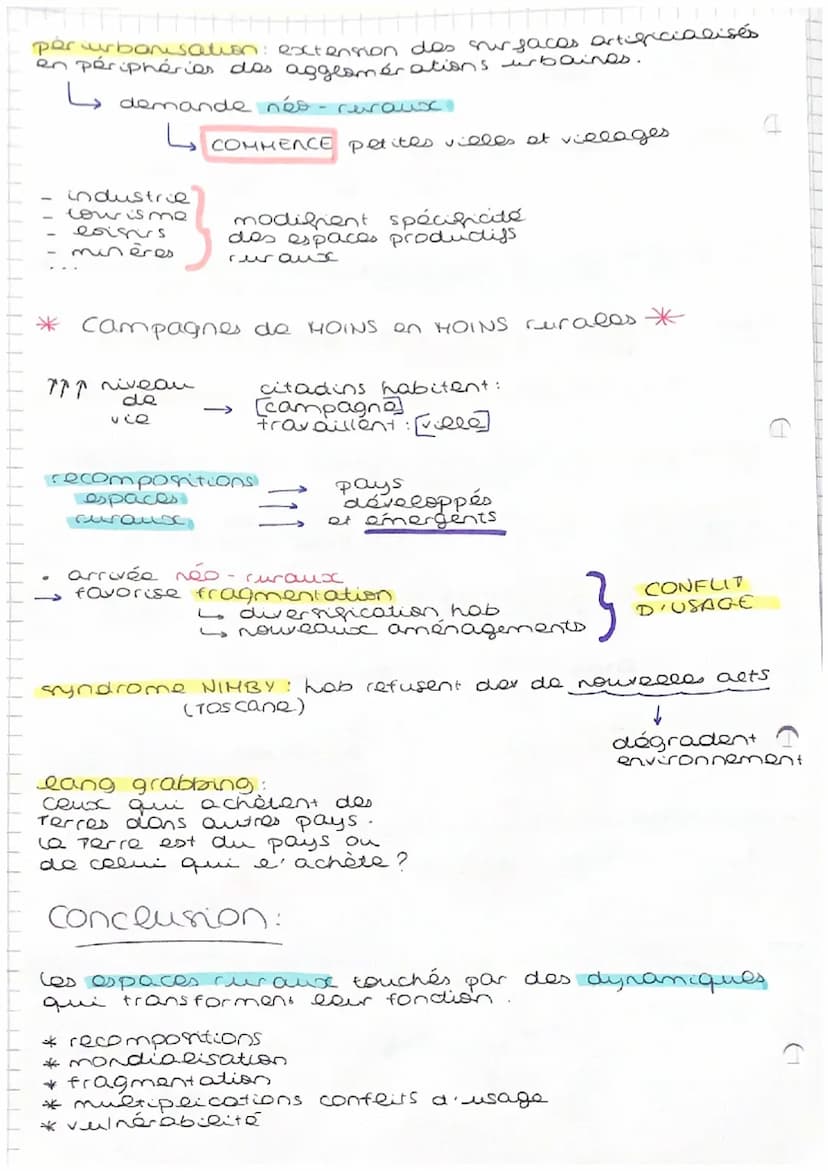 périurbanisation : extension des surfaces artificialisés
en périphéries des agglomérations urbaines.
↳ demande néo-ruraux
↳ COMMERCE petites villes et villages
- industrie
- tourisme
- loisirs
- minères
...
modifient spécificité
des espaces productifs
ruraux
* Campagnes de MOINS en MOINS rurales *
↑↑↑ niveau
de
vie
→ citadins habitent :
[campagne]
travaillent : [ville]
recompositions
espaces
ruraux
→ pays
→ développés
→ et émergents
• arrivée néo-ruraux
→ favorise fragmentation
↳ diversification hab
↳ nouveaux aménagements
CONFLIT
D'USAGE
syndrome NIMBY : hab refusent dev de nouvelles acts
(Toscane)
↓
dégradent
environnement
lang grabbing :
ceux qui achètent des
Terres dans autres pays.
La Terre est du pays ou
de celui qui l'achète ?
Conclusion :
Les espaces ruraux touchés par des dynamiques
qui transforment leur fondion.
* recompositions
* mondialisation
* fragmentation
* multiplications conflits d'usage
* vulnérabilité